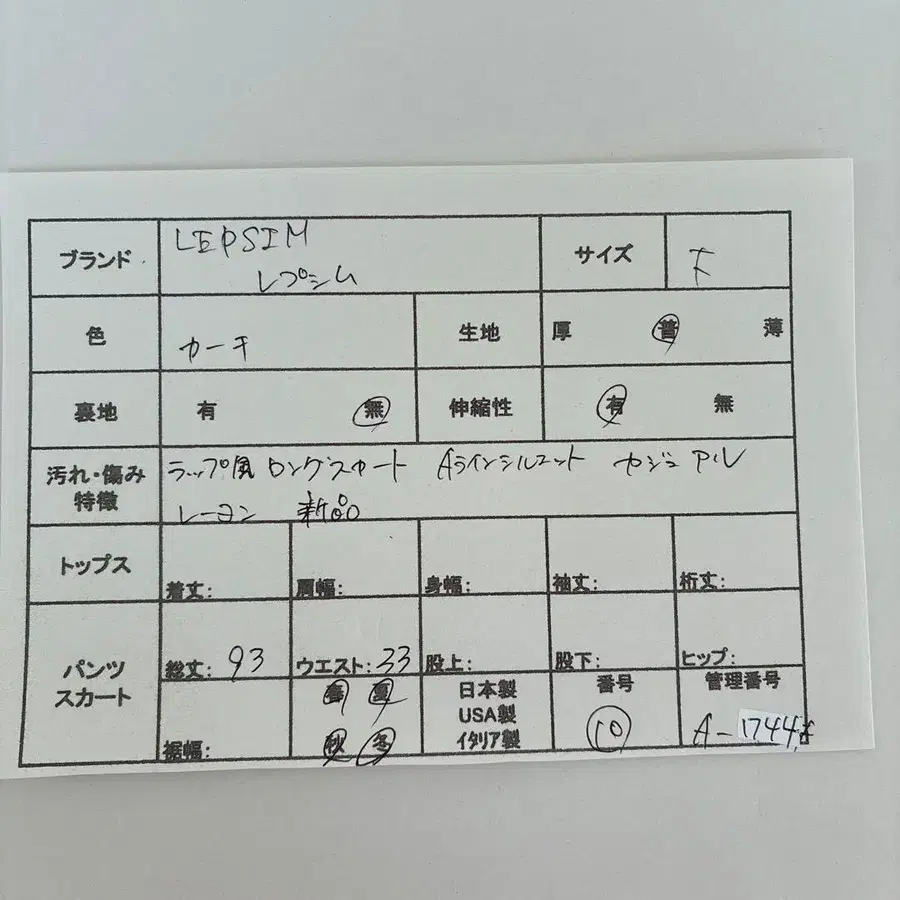 ブランド LEPSIM サイズ F
レプシム
色 カーキ 生地 厚 普 薄
裏地 有 無 伸縮性 有 無
汚れ・傷み ラップ風 ロングスカート Aラインシルエット カジュアル
特徴 レーヨン 新品
トップス 着丈: 肩幅: 身幅: 袖丈: 桁丈:
パンツ スカート 総丈: 93 ウエスト: 33 股上: 股下: ヒップ:
裾幅: 春 夏 日本製 番号 管理番号
USA製
秋 冬 イタリア製 10 A-1744